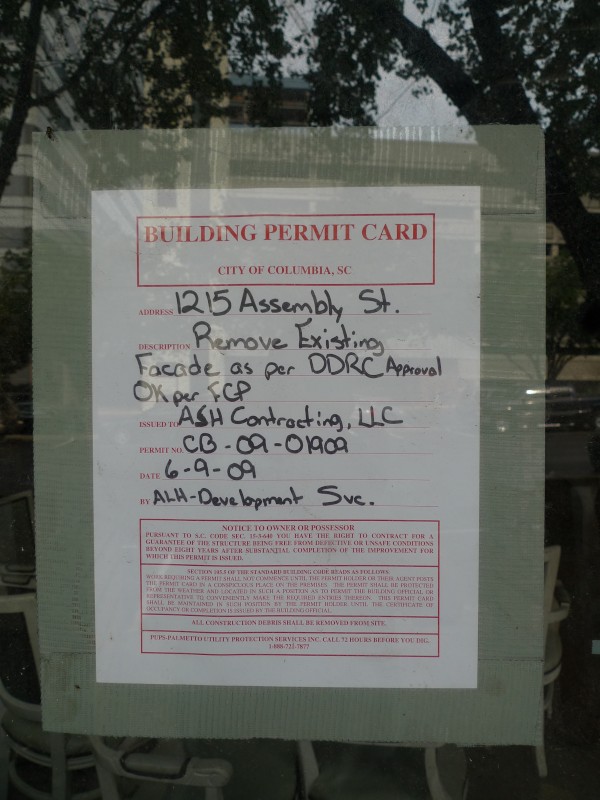 BUILDING PERMIT CARD
CITY OF COLUMBIA, SC
ADDRESS 1215 Assembly St.
DESCRIPTION Remove Existing
Facade as per DDRC Approval
OK per FCP
ISSUED TO ASH Contracting, LLC
PERMIT NO. CB-09-01909
DATE 6-9-09
BY ALH-Development Svc.
NOTICE TO OWNER OR POSSESSOR
PURSUANT TO S.C. CODE SEC. 15-3-640 YOU HAVE THE RIGHT TO CONTRACT FOR A
GUARANTEE OF THE STRUCTURE BEING FREE FROM DEFECTIVE OR UNSAFE CONDITIONS
BEYOND EIGHT YEARS AFTER SUBSTANTIAL COMPLETION OF THE IMPROVEMENT FOR
WHICH THIS PERMIT IS ISSUED.
SECTION 105.5 OF THE STANDARD BUILDING CODE READS AS FOLLOWS:
WORK REQUIRING A PERMIT SHALL NOT COMMENCE UNTIL THE PERMIT HOLDER OR THEIR AGENT POSTS
THE PERMIT CARD IN A CONSPICUOUS PLACE ON THE PREMISES. THE PERMIT SHALL BE PROTECTED
FROM THE WEATHER AND LOCATED IN SUCH A POSITION AS TO PERMIT THE BUILDING OFFICIAL OR
REPRESENTATIVE TO CONVENIENTLY MAKE THE REQUIRED ENTRIES THEREON. THIS PERMIT CARD
SHALL BE MAINTAINED IN SUCH POSITION BY THE PERMIT HOLDER UNTIL THE CERTIFICATE OF
OCCUPANCY OR COMPLETION IS ISSUED BY THE BUILDING OFFICIAL.
ALL CONSTRUCTION DEBRIS SHALL BE REMOVED FROM SITE.
PUPS-PALMETTO UTILITY PROTECTION SERVICES INC. CALL 72 HOURS BEFORE YOU DIG.
1-888-721-7877